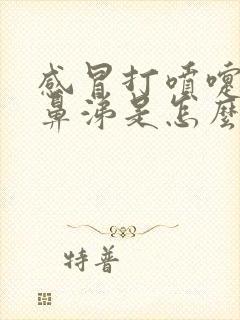 感冒打喷嚏
鼻涕是怎麽
特普